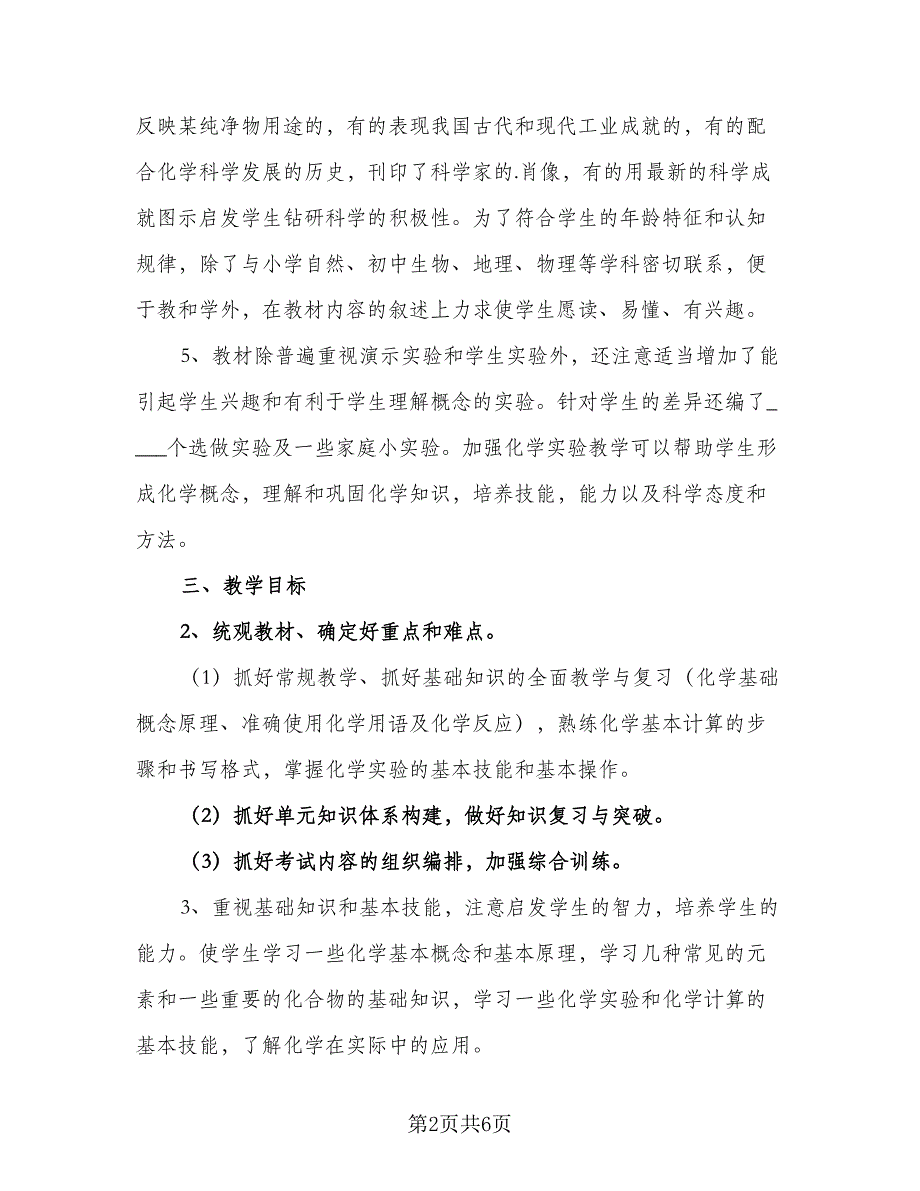 反映某纯净物用途的，有的表现我国古代和现代工业成就的，有的配
合化学科学发展的历史，刊印了科学家的.肖像，有的用最新的科学成
就图示启发学生钻研科学的积极性。为了符合学生的年龄特征和认知
规律，除了与小学自然、初中生物、地理、物理等学科密切联系，便
于教和学外，在教材内容的叙述上力求使学生愿读、易懂、有兴趣。
5、教材除普遍重视演示实验和学生实验外，还注意适当增加了能
引起学生兴趣和有利于学生理解概念的实验。针对学生的差异还编了_
___个选做实验及一些家庭小实验。加强化学实验教学可以帮助学生形
成化学概念，理解和巩固化学知识，培养技能，能力以及科学态度和
方法。
三、教学目标
2、统观教材、确定好重点和难点。
（1）抓好常规教学、抓好基础知识的全面教学与复习（化学基础
概念原理、准确使用化学用语及化学反应），熟练化学基本计算的步
骤和书写格式，掌握化学实验的基本技能和基本操作。
（2）抓好单元知识体系构建，做好知识复习与突破。
（3）抓好考试内容的组织编排，加强综合训练。
3、重视基础知识和基本技能，注意启发学生的智力，培养学生的
能力。使学生学习一些化学基本概念和基本原理，学习几种常见的元
素和一些重要的化合物的基础知识，学习一些化学实验和化学计算的
基本技能，了解化学在实际中的应用。
第2页共6页